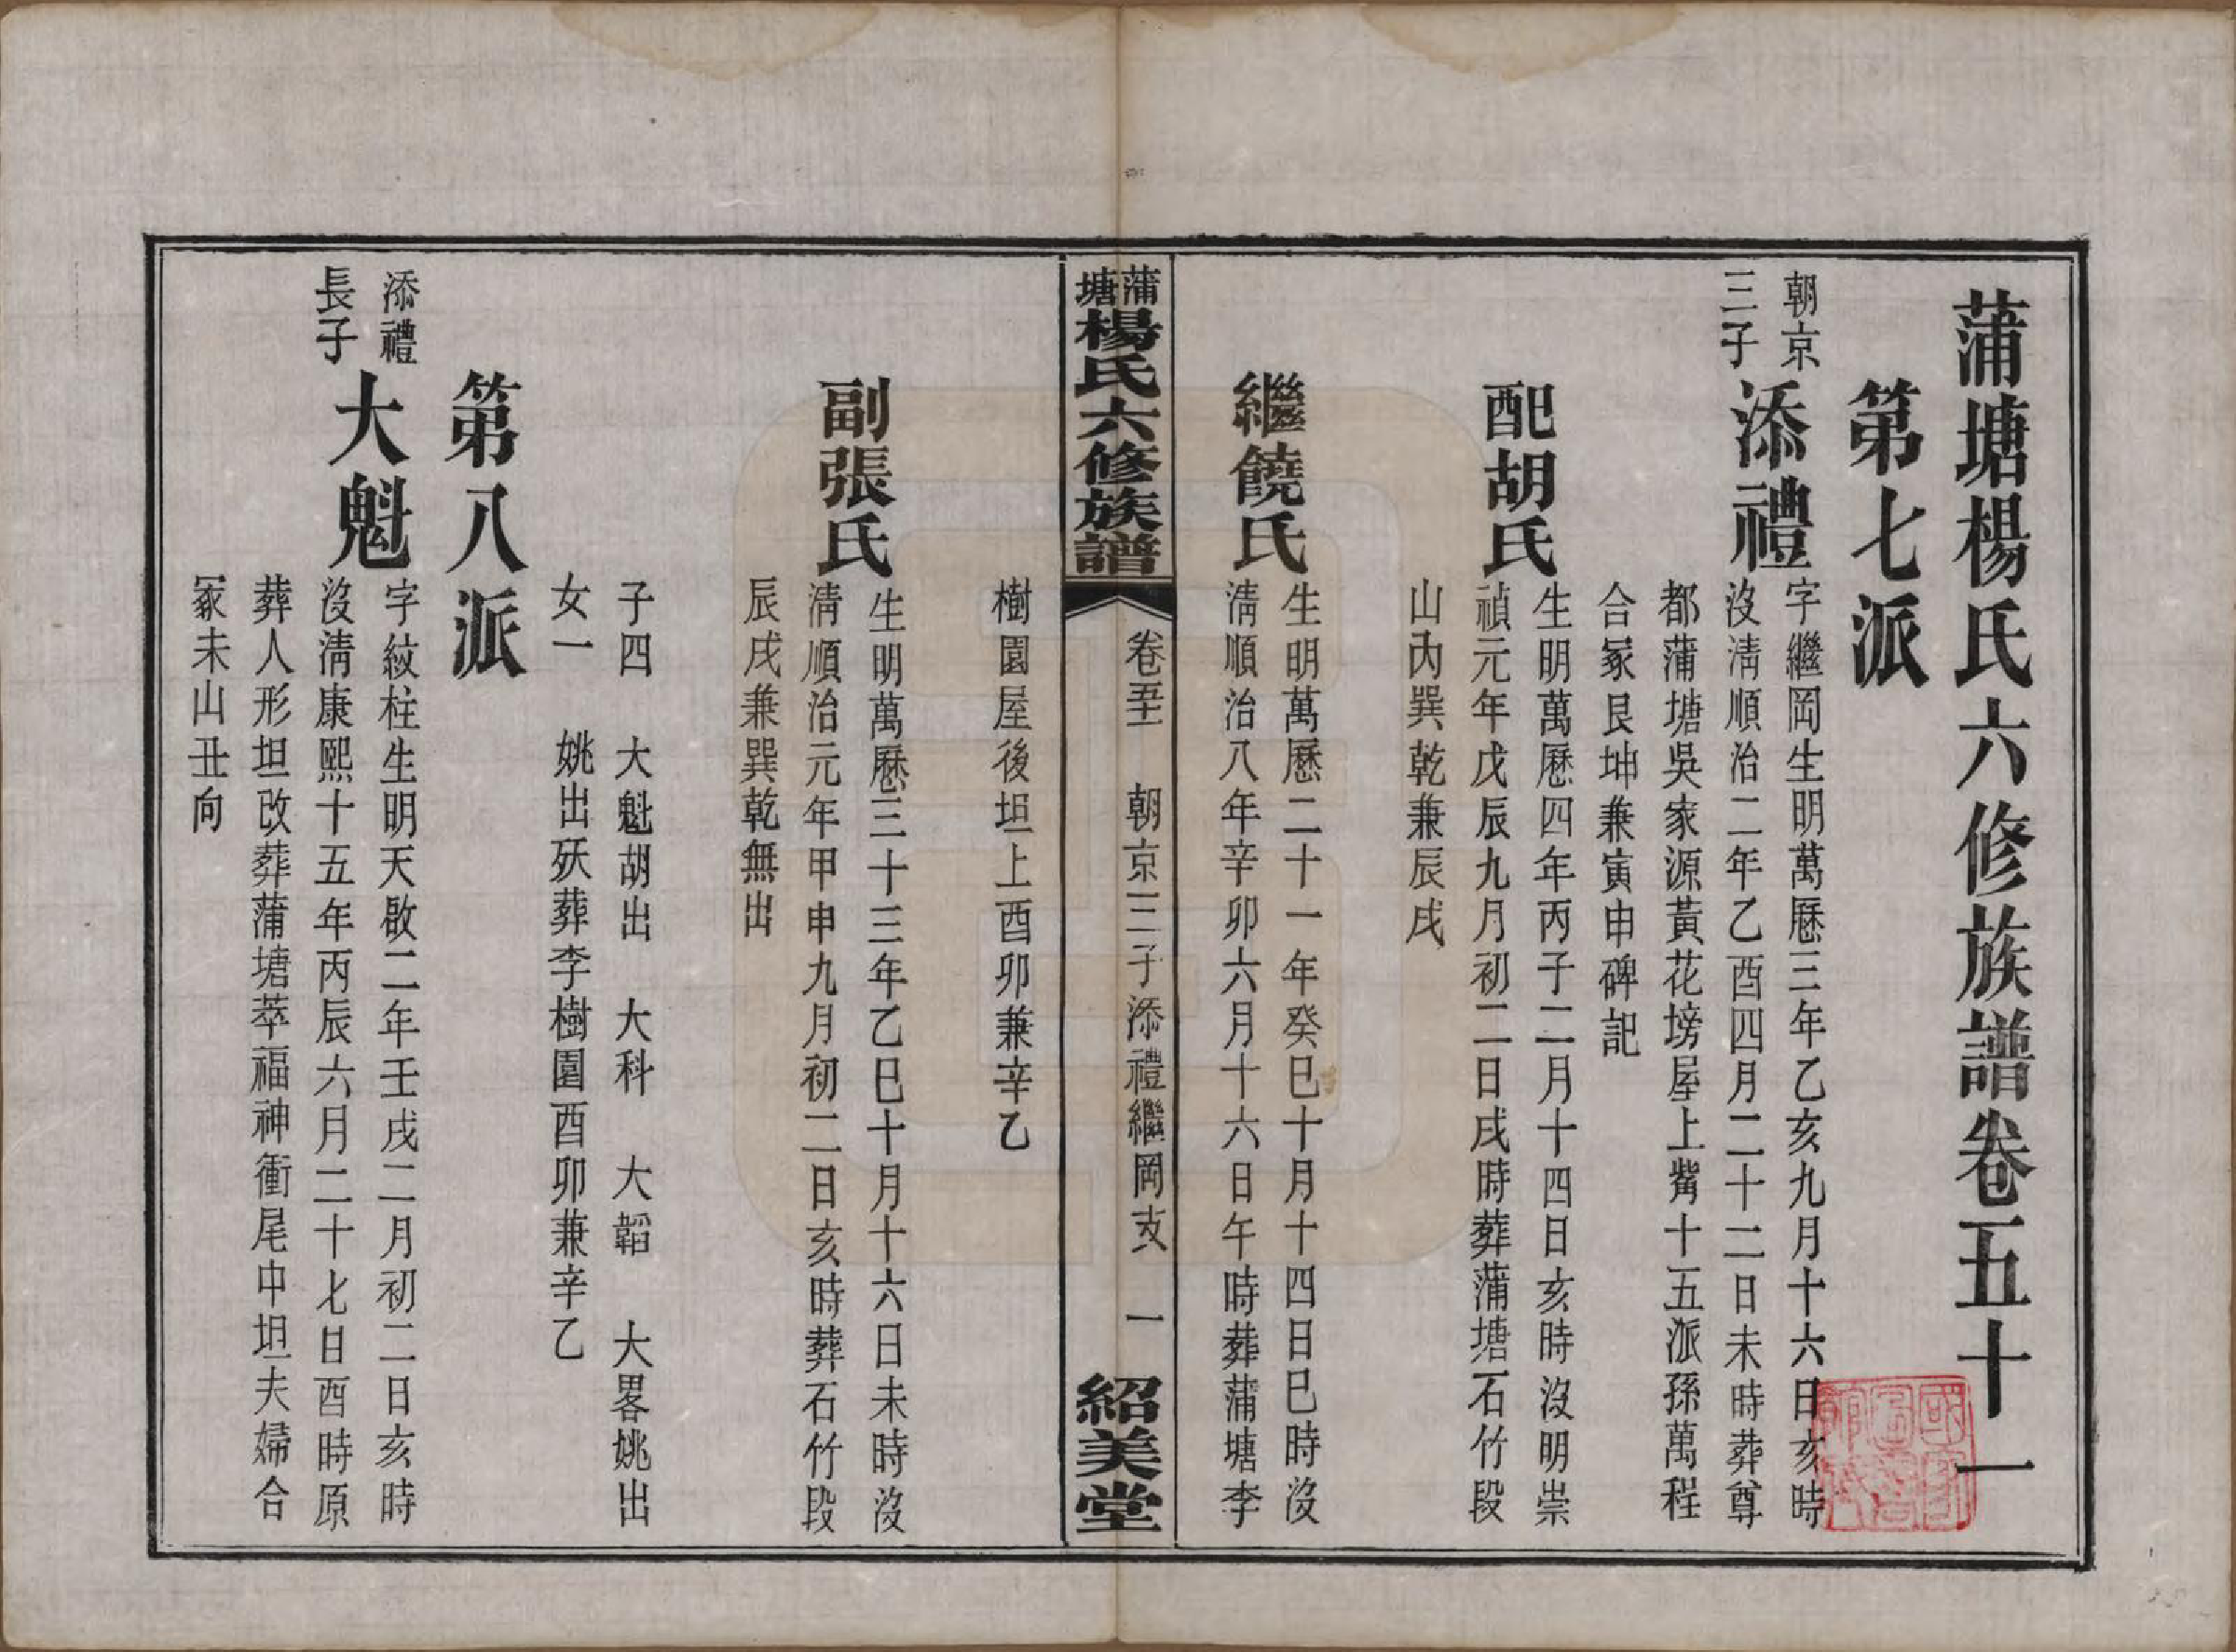 蒲塘楊氏六修族譜卷五十一
第七派
朝京
三子
添禮
字繼岡生明萬歷三年乙亥九月十六日亥時
沒淸順治二年乙酉四月二十二日未時葬尊
都蒲塘吳家源黃花塝屋上觜十五派孫萬程
合冢艮坤兼寅申碑記
配胡氏
生明萬歷四年丙子二月十四日亥時沒明崇
禎元年戊辰九月初二日戌時葬蒲塘石竹段
山內巽乾兼辰戌
繼饒氏
生明萬歷二十一年癸巳十月十四日巳時沒
淸順治八年辛卯六月十六日午時葬蒲塘李
蒲塘楊氏六修族譜
卷五十一 朝京三子添禮繼岡支 一
紹美堂
樹園屋後坦上酉卯兼辛乙
副張氏
生明萬歷三十三年乙巳十月十六日未時沒
淸順治元年甲申九月初二日亥時葬石竹段
辰戌兼巽乾無出
子四 大魁胡出 大科 大韜 大畧姚出
女一 姚出殀葬李樹園酉卯兼辛乙
第八派
添禮
長子
大魁
字紋柱生明天啟二年壬戌二月初二日亥時
沒淸康熙十五年丙辰六月二十七日酉時原
葬人形坦改葬蒲塘萃福神衝尾中坦夫婦合
冢未山丑向